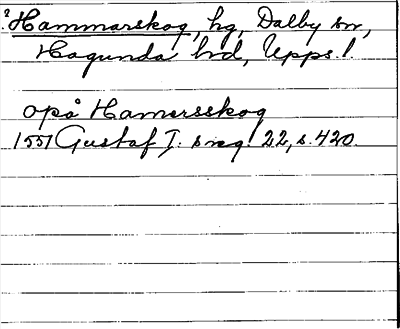 ? Hammarskog, hg, Dalby sn,
Hagunda hd, Upps. l.
opå Hamersskog
1551 Gustaf I. s reg. 22, s. 420.